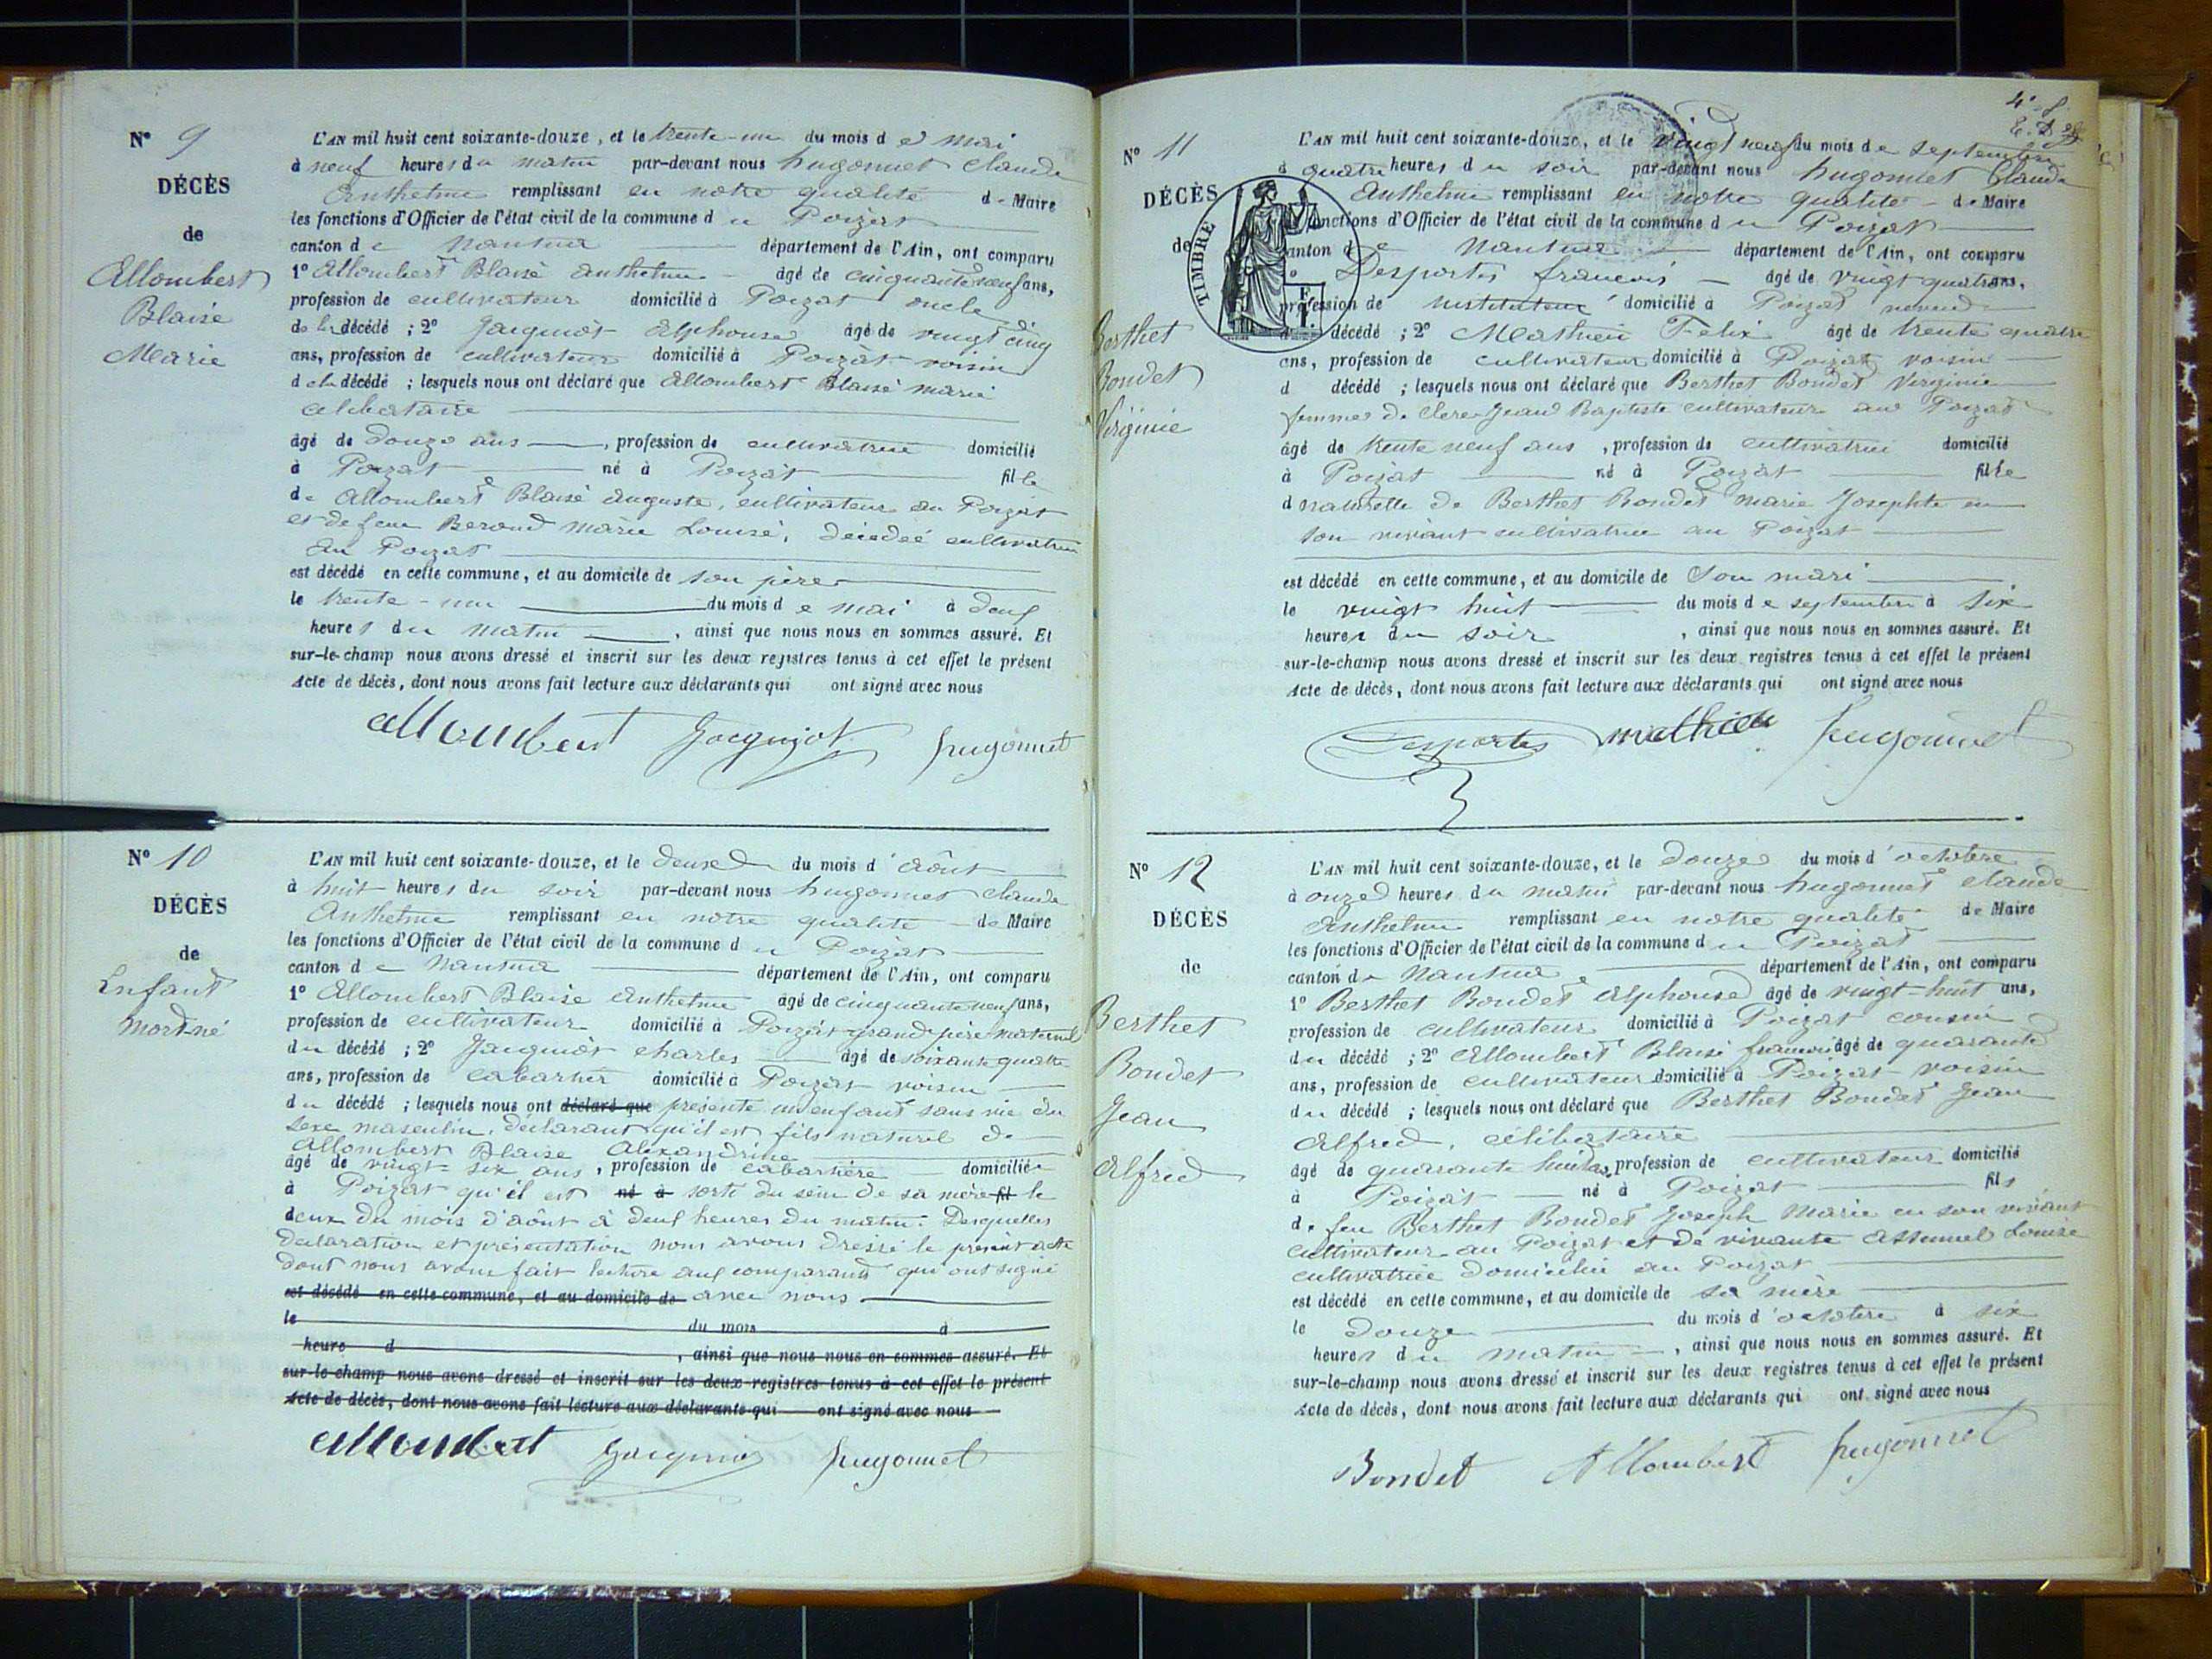 N° 9
DÉCÈS
de
Allombert
Blaise
Marie
L'AN mil huit cent soixante-douze, et le trente-un du mois de mai
à neuf heures du matin par-devant nous hugonnet Claude
Anthelme remplissant en notre qualité de Maire
les fonctions d'Officier de l'état civil de la commune du Poizat
canton de Nantua département de l'Ain, ont comparu
1° Allombert Blaise anthelme âgé de cinquante neuf ans,
profession de cultivateur domicilié à Poizat oncle
de la décédé ; 2° Jacquiot Alphonse âgé de vingt cinq
ans, profession de cultivateur domicilié à Poizat voisin
de la décédé ; lesquels nous ont déclaré que Allombert Blaise marie
célibataire
âgé de douze ans, profession de cultivatrice domicilié
à Poizat né à Poizat fille
de Allombert Blaise auguste, cultivateur au Poizat
et de feue Beroud marie Louise, décédée cultivatrice
au Poizat
est décédé en cette commune, et au domicile de son père
le trente-un du mois de mai à deux
heures du matin, ainsi que nous nous en sommes assuré. Et
sur-le-champ nous avons dressé et inscrit sur les deux registres tenus à cet effet le présent
Acte de décès, dont nous avons fait lecture aux déclarants qui ont signé avec nous
Allombert Jacquiot hugonnet
N° 10
DÉCÈS
de
Enfant
mort-né
L'AN mil huit cent soixante-douze, et le deux du mois d'août
à huit heures du soir par-devant nous hugonnet Claude
Anthelme remplissant en notre qualité de Maire
les fonctions d'Officier de l'état civil de la commune du Poizat
canton de Nantua département de l'Ain, ont comparu
1° Allombert Blaise Anthelme âgé de cinquante neuf ans,
profession de cultivateur domicilié à Poizat grand père maternel
du décédé ; 2° Jacquiot charles âgé de soixante quatre
ans, profession de cabartier domicilié à Poizat voisin
du décédé ; lesquels nous ont déclaré que présenté un enfant sans vie du
sexe masculin, déclarant qu'il est fils naturel de
Allombert Blaise Alexandrine
âgé de vingt-six ans, profession de cabartière domiciliée
à Poizat qu'il est né à sorti du sein de sa mère fil le
deux du mois d'août à deux heures du matin. Desquelles
déclaration et présentation nous avons dressé le présent acte
dont nous avons fait lecture aux comparants qui ont signé
est décédé en cette commune, et au domicile de avec nous
le du mois à
heure d , ainsi que nous nous en sommes assuré. Et
sur-le-champ nous avons dressé et inscrit sur les deux registres tenus à cet effet le présent
Acte de décès, dont nous avons fait lecture aux déclarants qui ont signé avec nous
Allombert Jacquiot hugonnet
N° 11
DÉCÈS
de
Berthet
Bondet
Virginie
TIMBRE
L'AN mil huit cent soixante-douze, et le vingt neuf du mois de septembre
à quatre heures du soir par-devant nous hugonnet Claude
Anthelme remplissant en notre qualité de Maire
les fonctions d'Officier de l'état civil de la commune du Poizat
canton de Nantua département de l'Ain, ont comparu
1° Desportes francois âgé de vingt quatre ans,
profession de instituteur domicilié à Poizat
décédé ; 2° Mathieu Felix âgé de trente quatre
ans, profession de cultivateur domicilié à Poizat voisin
d décédé ; lesquels nous ont déclaré que Berthet Bondet Virginie
femme de Clere Jean Baptiste cultivateur au Poizat
âgé de trente neuf ans, profession de cultivatrice domicilié
à Poizat né à Poizat fille
d naturelle de Berthet Bondet Marie Josephte en
son vivant cultivatrice au Poizat
est décédé en cette commune, et au domicile de son mari
le vingt huit du mois de septembre à six
heures du soir, ainsi que nous nous en sommes assuré. Et
sur-le-champ nous avons dressé et inscrit sur les deux registres tenus à cet effet le présent
Acte de décès, dont nous avons fait lecture aux déclarants qui ont signé avec nous
Desportes mathieu hugonnet
N° 12
DÉCÈS
de
Berthet
Bondet
Jean
Alfred
L'AN mil huit cent soixante-douze, et le douze du mois d'octobre
à onze heures du matin par-devant nous hugonnet Claude
Anthelme remplissant en notre qualité de Maire
les fonctions d'Officier de l'état civil de la commune du Poizat
canton de Nantua département de l'Ain, ont comparu
1° Berthet Bondet Alphonse âgé de vingt-huit ans,
profession de cultivateur domicilié à Poizat cousin
du décédé ; 2° Allombert Blaise francois âgé de quarante
ans, profession de cultivateur domicilié à Poizat voisin
du décédé ; lesquels nous ont déclaré que Berthet Bondet Jean
Alfred, célibataire
âgé de quarante huit ans, profession de cultivateur domicilié
à Poizat né à Poizat fils
de feu Berthet Bondet Joseph Marie en son vivant
cultivateur au Poizat et de vivante Assumel Louise
cultivatrice domiciliée au Poizat
est décédé en cette commune, et au domicile de sa mère
le douze du mois d'octobre à six
heures du matin, ainsi que nous nous en sommes assuré. Et
sur-le-champ nous avons dressé et inscrit sur les deux registres tenus à cet effet le présent
Acte de décès, dont nous avons fait lecture aux déclarants qui ont signé avec nous
Bondet Allombert hugonnet